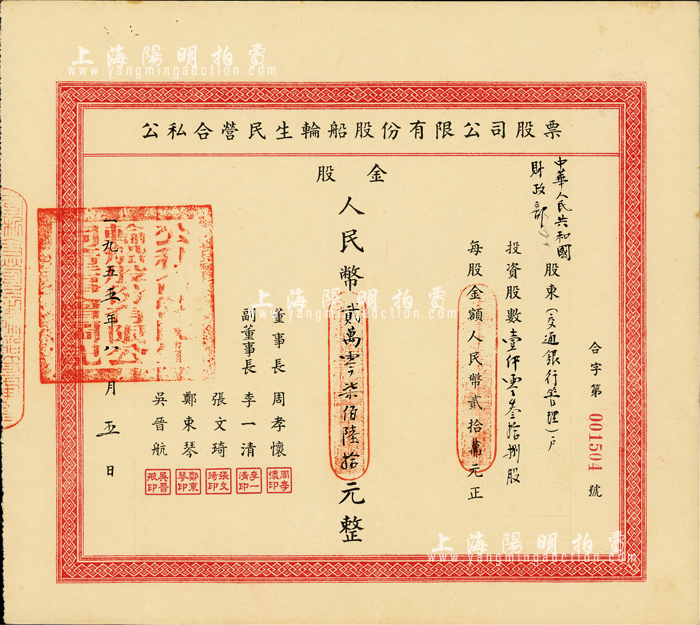 上海陽明拍賣
www.yangmingauction.com
公私合營民生輪船股份有限公司股票
合字第 001504 號
中華人民共和國
財政部
股東(交通銀行管理)戶
投資股數壹仟零叁拾捌股
每股金額人民幣貳拾萬元正
股金
人民幣貳萬零柒佰陸拾元整
董事長 周孝懷
副董事長 李一清
張文琦
鄭東琴
吳晉航
周孝懷印
李一清印
張文琦印
鄭東琴印
吳晉航印
一九五五年八月五日
上海陽明拍賣
www.yangmingauction.com
上海陽明拍賣
www.yangmingauction.com